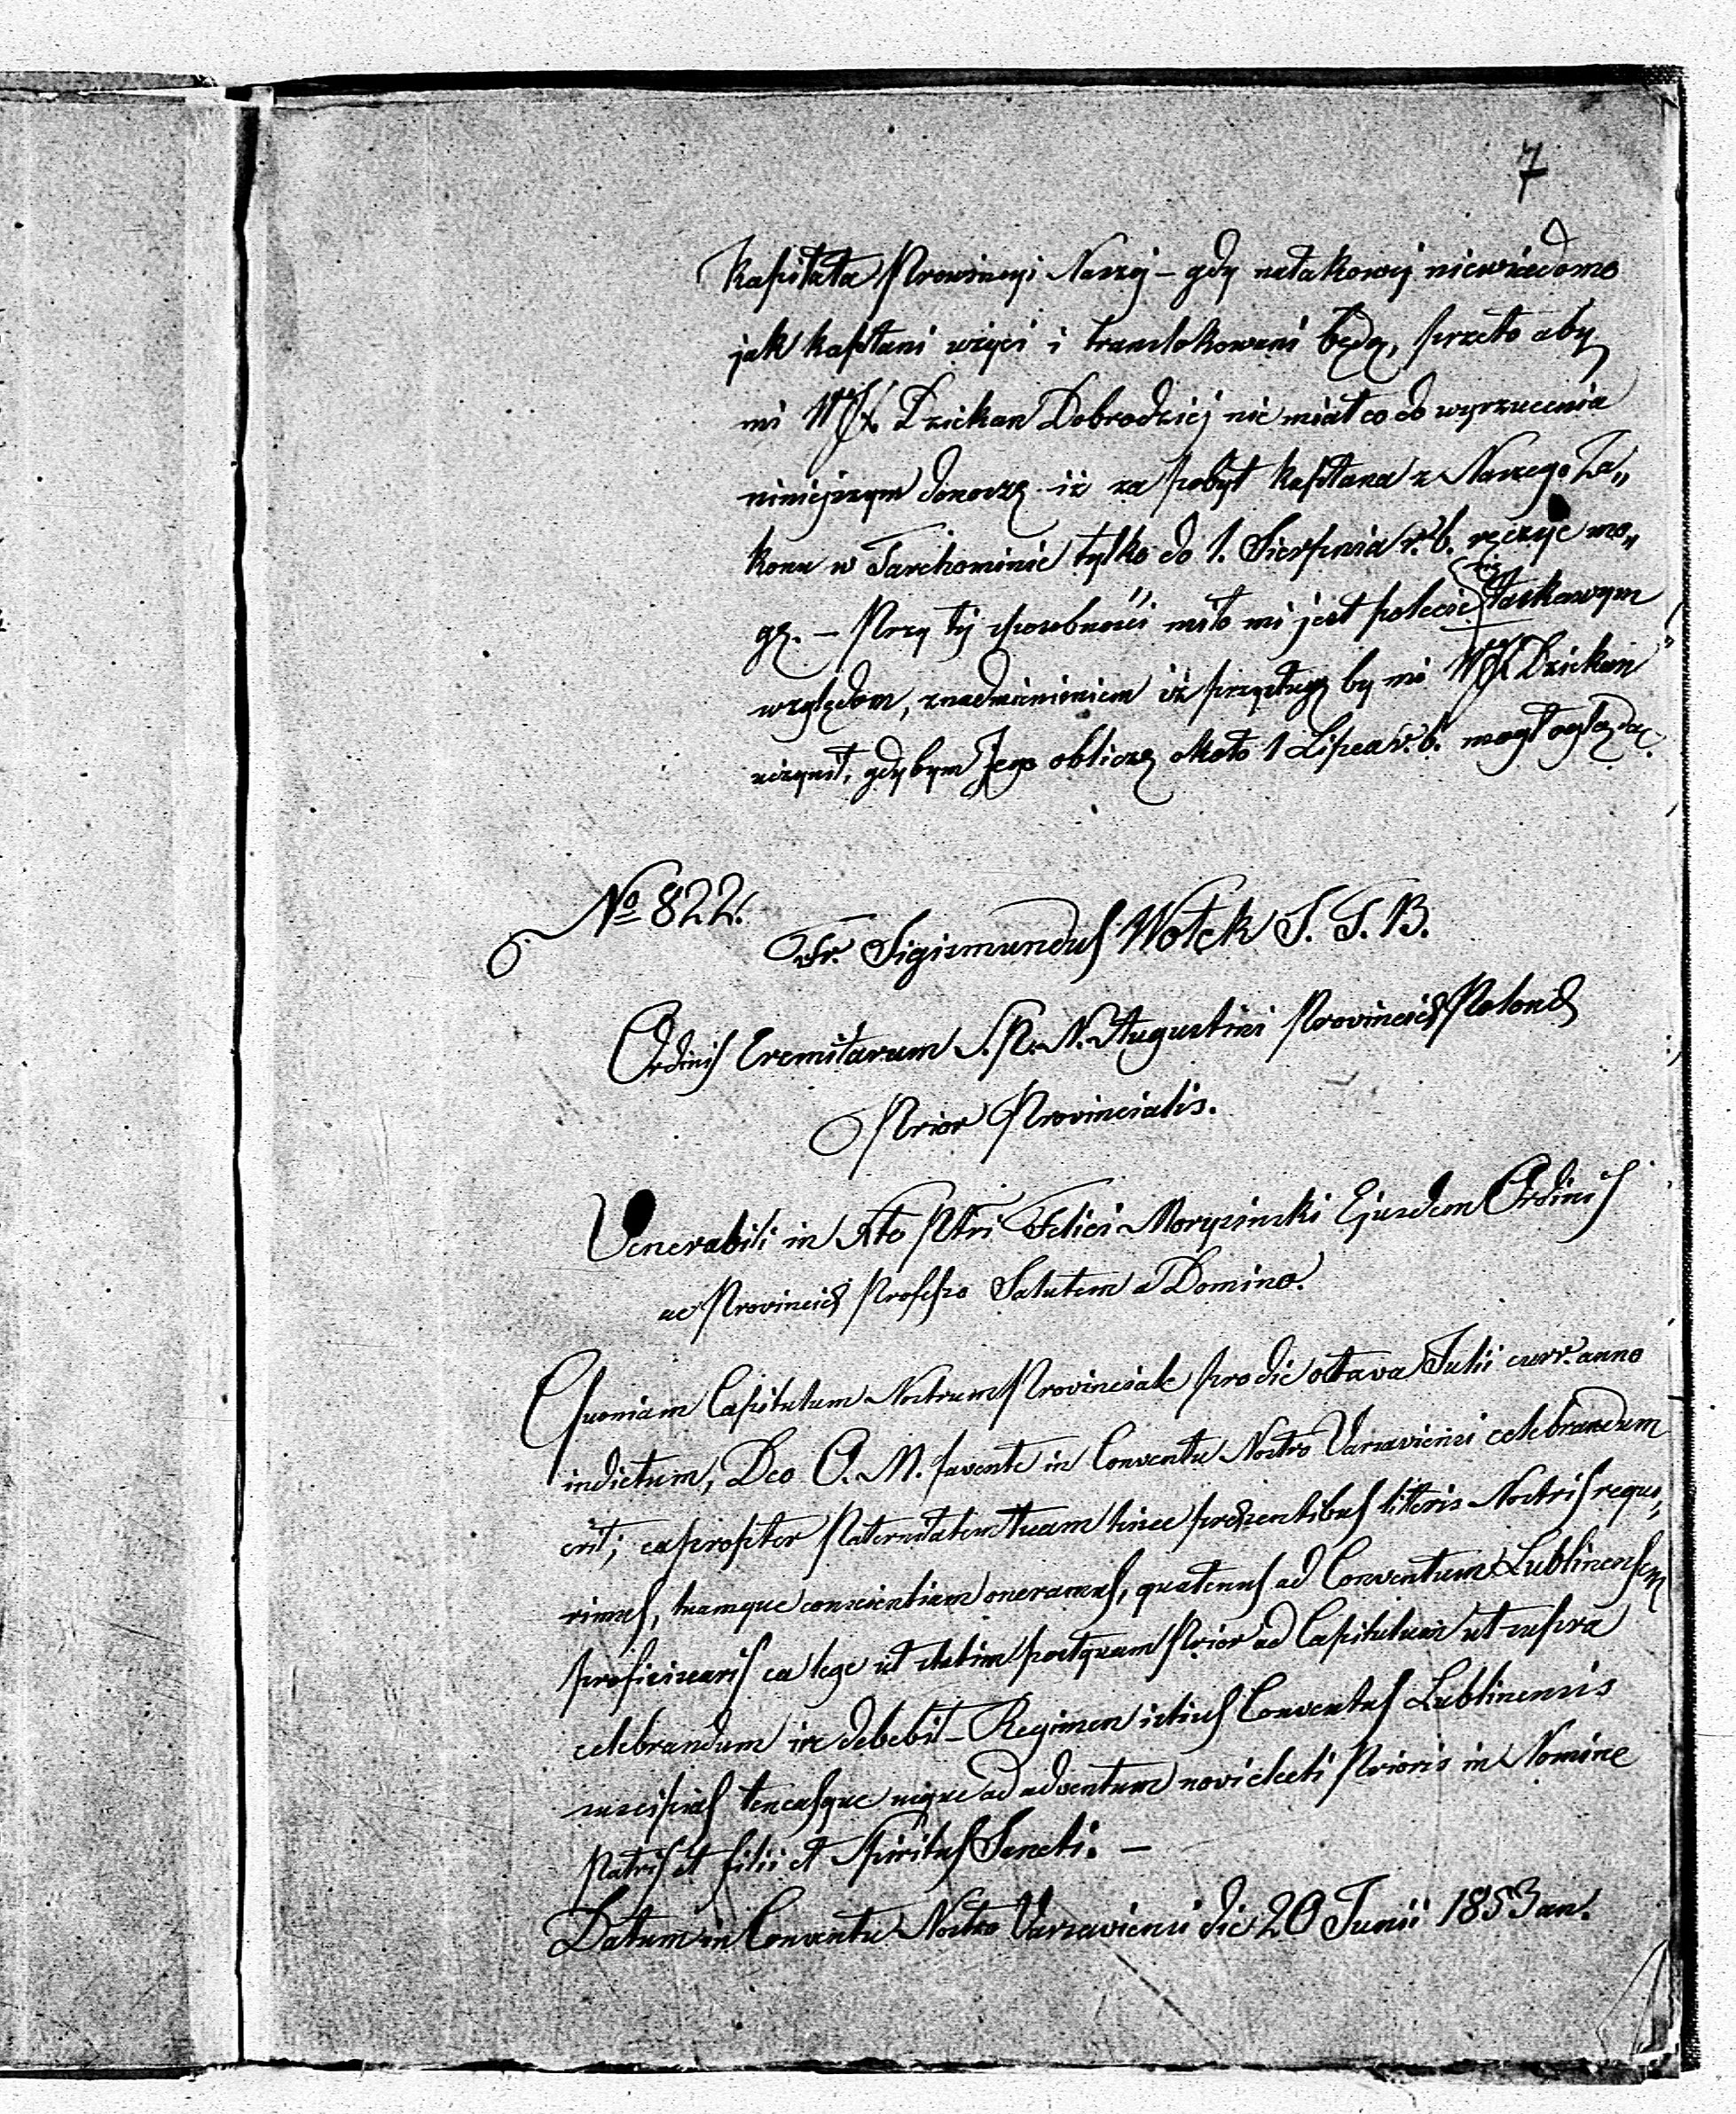 7
Kapituła Prowincyi Naszej – gdy natakowej niewiadomo
jak kapłani użyci i translokowani będą, przeto aby
mi WJX. Dziekan Dobrodziej nie miał co do wyrzucenia
niniejszym donoszę iż za pobyt kapłana z Naszego Za„
konu w Tarchominie tylko do 1. Sierpnia r. b. ręczyć mo„
gę. – Przy tej sposobności miło mi jest polecić się łaskawym
względom, z nadmienieniem iż przysługę by mi WJX Dziekan
uczynił, gdybym Jego oblicze około 1 Lipca r. b. mógł oglądać.
No 822.
Fr. Sigismundus Wołek S. T. B.
Ordinis Eremitarum S. P. N. Augustini Provinciæ Polonæ
Prior Provincialis.
Venerabili in Xto Ptri Felici Moryciński Ejusdem Ordinis
ac Provinciæ Professo Salutem a Domino.
Quoniam Capitulum Nostrum Provinciale pro die octava Julii curr. anno
indictum, Deo O. M. favente in Conventu Nostro Varsaviensi celebrandum
erit; eapropter Paternitatem tuam hisce præsentibus literis Nostris requi„
rimus, tuamque conscientiam oneramus, quatenus ad Conventum Lublinensem
proficiscaris ea lege ut statim postquam Prior ad Capitulum ut supra
celebrandum ire debebit – Regimen istius Conventus Lublinensis
suscipias teneasque usque ad adventum novi electi Prioris in Nomine
Patris et filii et Spiritus Sancti. –
Datum in Conventu Nostro Varsaviensi die 20 Junii 1853 an.